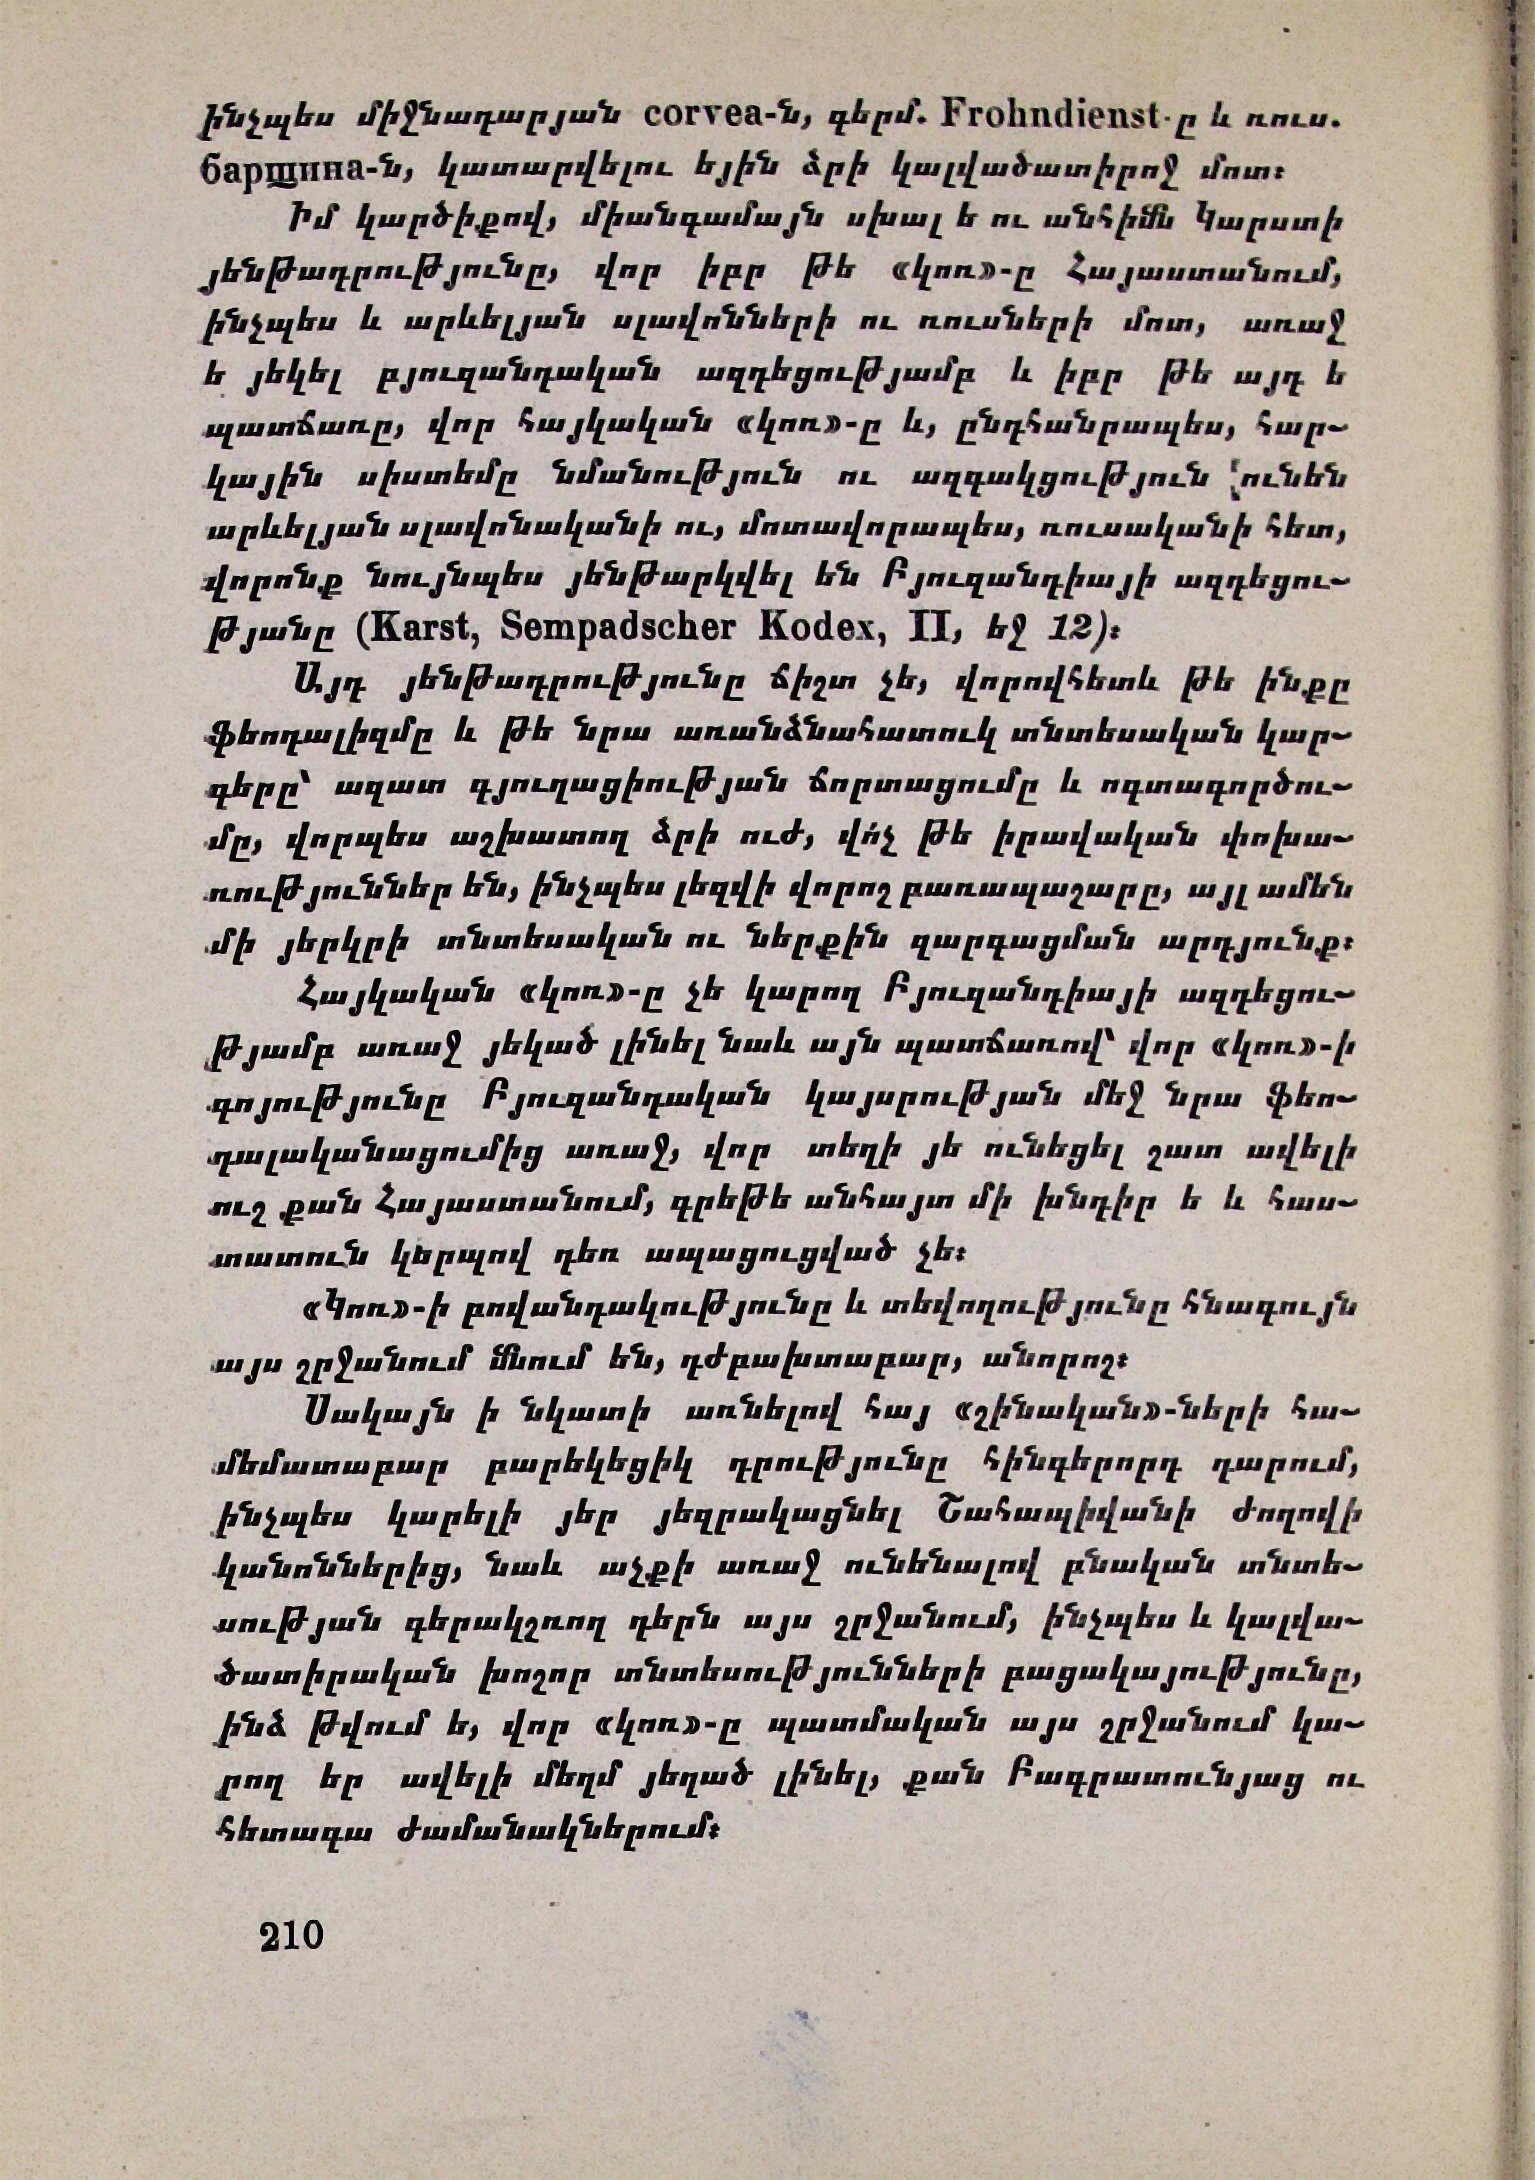 ինչպես միջնադարյան corvea-ն, գերմ. Frohndienst-ը և ռուս.
барщина-ն, կատարվելու եյին ձրի կալվածատիրոջ մոտ։
Իմ կարծիքով, միանգամայն սխալ ե ու անհիմն Կարստի
յենթադրությունը, վոր իբր թե «կոռ»-ը Հայաստանում,
ինչպես և արևելյան սլավոնների ու ռուսների մոտ, առաջ
ե յեկել բյուզանդական ազդեցությամբ և իբր թե այդ ե
պատճառը, վոր հայկական «կոռ»-ը և, ընդհանրապես, հար-
կային սիստեմը նմանություն ու ազգակցություն ունեն
արևելյան սլավոնականի ու, մոտավորապես, ռուսականի հետ,
վորոնք նույնպես յենթարկվել են Բյուզանդիայի ազդեցու-
թյանը (Karst, Sempadscher Kodex, II, եջ 12)։
Այդ յենթադրությունը ճիշտ չե, վորովհետև թե ինքը
ֆեոդալիզմը և թե նրա առանձնահատուկ տնտեսական կար-
գերը՝ ազատ գյուղացիության ճորտացումը և ոգտագործու-
մը, վորպես աշխատող ձրի ուժ, վո՛չ թե իրավական փոխա-
ռություններ են, ինչպես լեզվի վորոշ բառապաշարը, այլ ամեն
մի յերկրի տնտեսական ու ներքին զարգացման արդյունք։
Հայկական «կոռ»-ը չե կարող Բյուզանդիայի ազդեցու-
թյամբ առաջ յեկած լինել նաև այն պատճառով՝ վոր «կոռ»-ի
գոյությունը Բյուզանդական կայսրության մեջ նրա ֆեո-
դալականացումից առաջ, վոր տեղի յե ունեցել շատ ավելի
ուշ քան Հայաստանում, գրեթե անհայտ մի խնդիր ե և հաս-
տատուն կերպով դեռ ապացուցված չե։
«Կոռ»-ի բովանդակությունը և տեվողությունը հնագույն
այս շրջանում մնում են, դժբախտաբար, անորոշ։
Սակայն ի նկատի առնելով հայ «շինական»-ների հա-
մեմատաբար բարեկեցիկ դրությունը հինգերորդ դարում,
ինչպես կարելի յեր յեզրակացնել Շահապիվանի ժողովի
կանոններից, նաև աչքի առաջ ունենալով բնական տնտե-
սության գերակշռող դերն այս շրջանում, ինչպես և կալվա-
ծատիրական խոշոր տնտեսությունների բացակայությունը,
ինձ թվում ե, վոր «կոռ»-ը պատմական այս շրջանում կա-
րող եր ավելի մեղմ յեղած լինել, քան Բագրատունյաց ու
հետագա ժամանակներում։
210